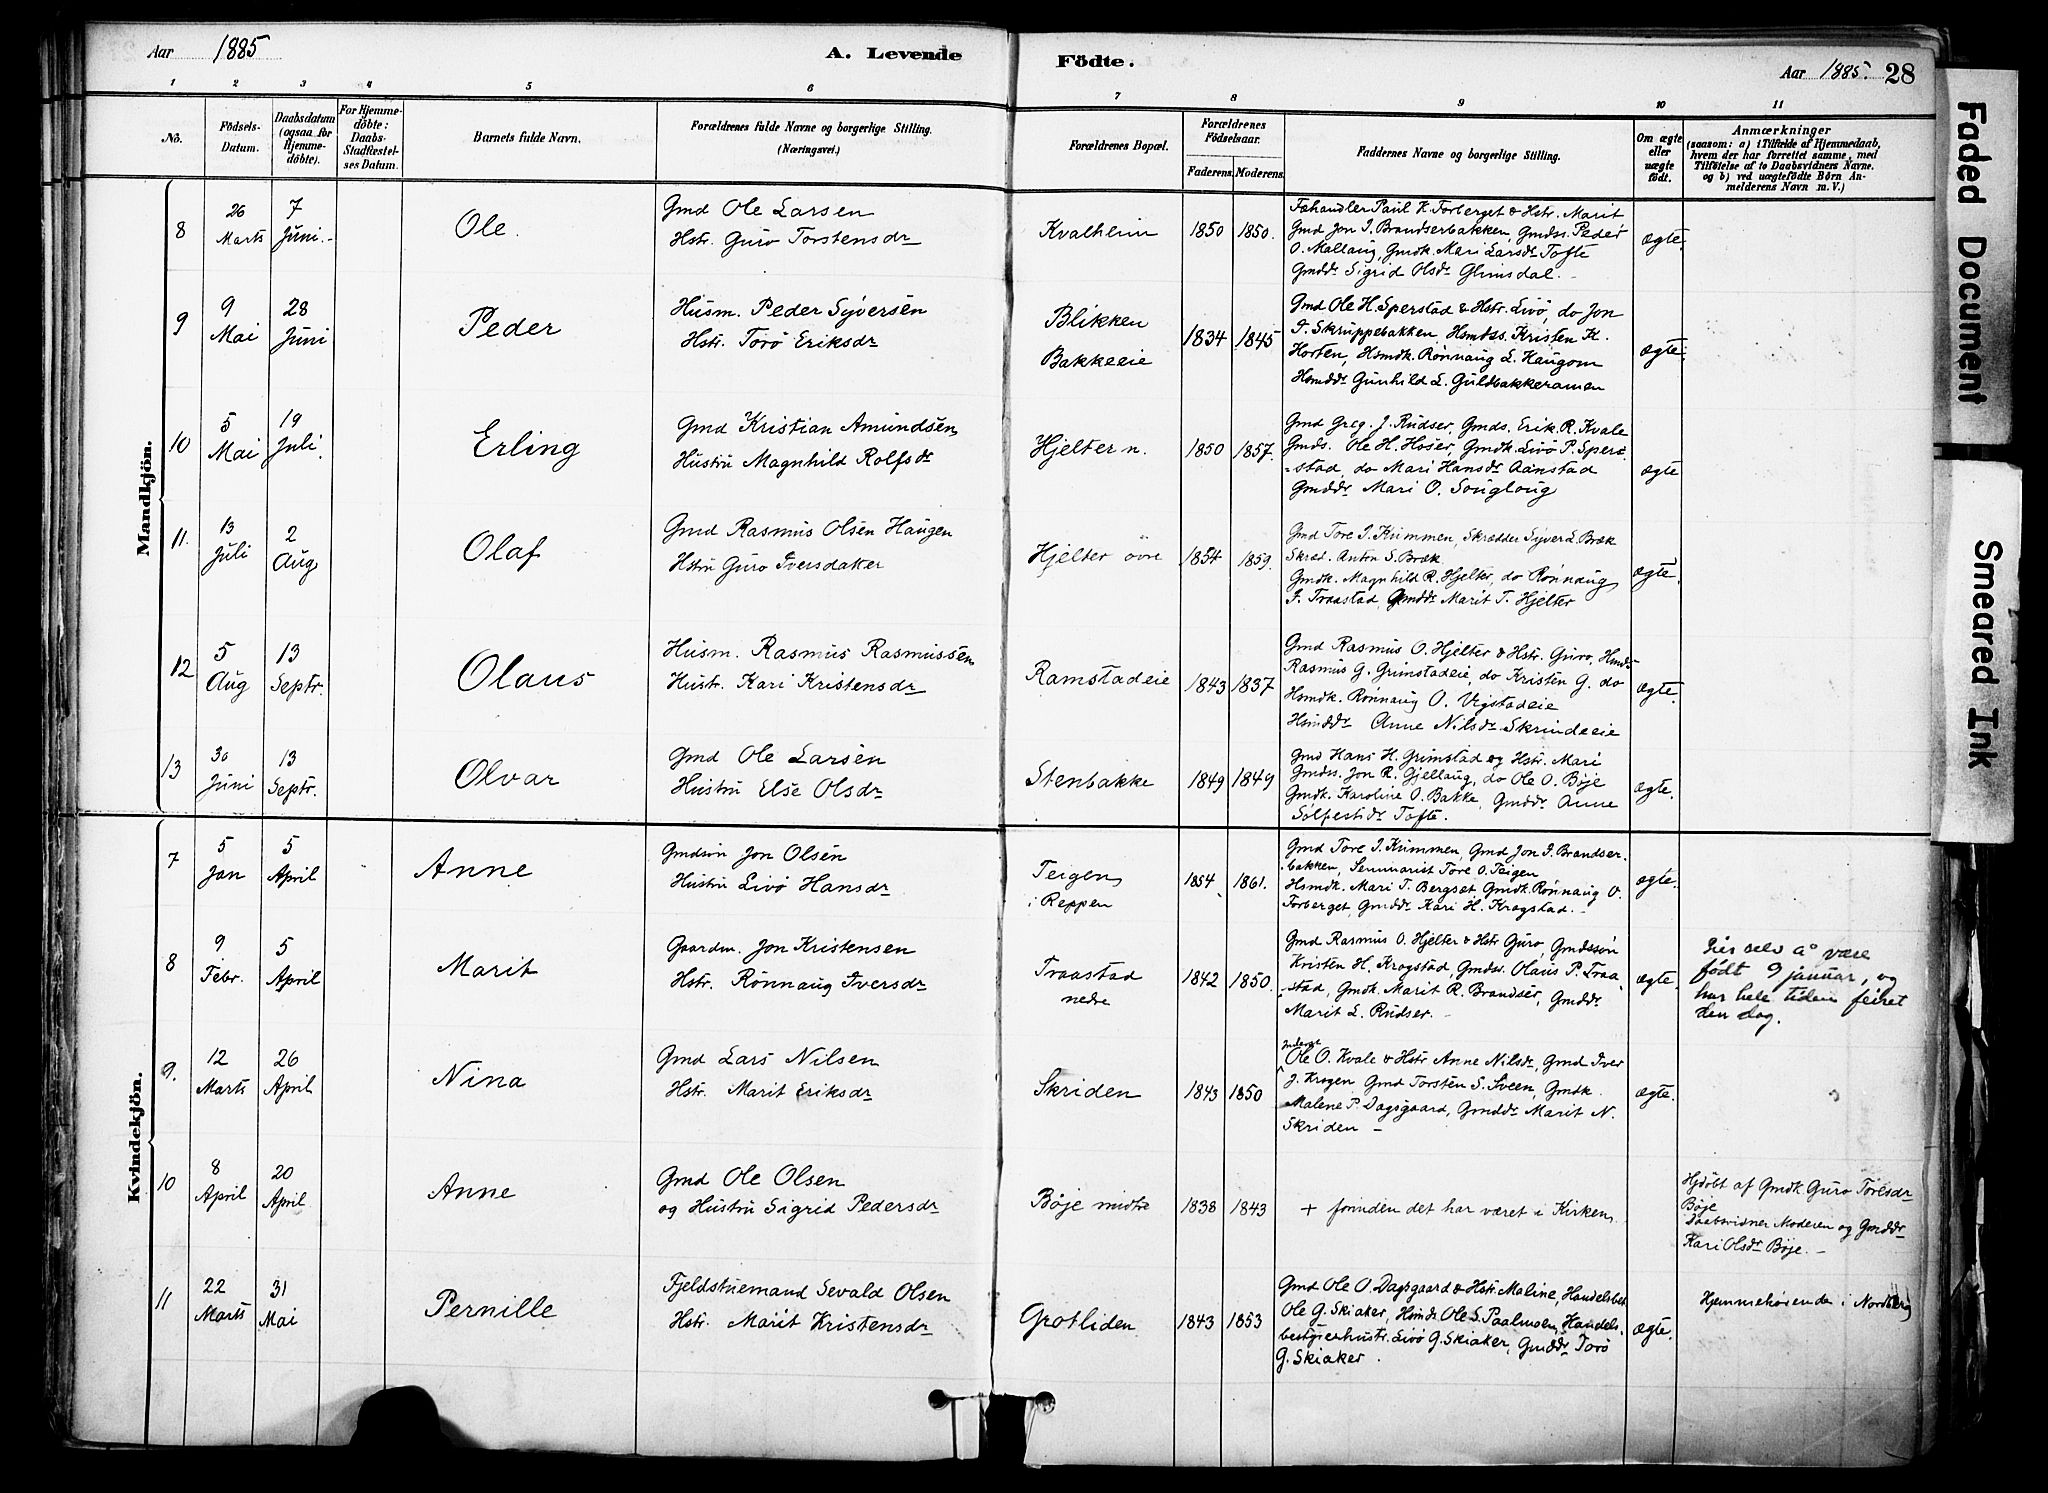 Aar 1885
A. Levende
Födte.
Aar 1885. 28
1 2 3 4 5 6 7 8 9 10 11
No.
Födsels-Datum.
Daabsdatum (ogsaa for Hjemmedöbte).
For Hjemmedöbte: Daabs-Stadfæstelses Datum.
Barnets fulde Navn.
Forældrenes fulde Navne og borgerlige Stilling.
(Næringsvei.)
Forældrenes Bopæl.
Forældrenes Födselsaar.
Faderens. Moderens.
Faddernes Navne og borgerlige Stilling.
Om ægte eller uægte födt.
Anmærkninger
(saasom: a) i Tilfælde af Hjemmedaab,
hvem der har forrettet samme, med
Tilföielse af to Daabsvidners Navne.
og b) ved uægtefödte Børn Anmelderens Navn m. V.)
Mandkjön.
8
26 Marts
7 Juni.
Ole.
Gmd Ole Larsen
Hstr. Guro Torstensdr
Kvalheim
1850 1850.
Fæhandler Paul K. Forberget & Hstr. Marit
Gmd Jon I. Brandserbakken, Gmdss. Peder
O. Mallaug, Gmdk. Mari Larsdr Tofte
Gmddr Sigrid Olsdr Glimsdal.
ægte.
9
9 Mai
28 Juni
Peder
Husm. Peder Syversen
Hstr. Torö Eriksdr
Blikken
Bakkeeie
1834 1845
Gmd Ole H. Sperstad & Hstr. Livö, do Jon
I. Skruppebakken, Hsmdss. Kristen K.
Horten, Hsmdk. Rønnaug L. Haugom
Hsmddr Gunhild L. Guldbakkeramen
ægte.
10
5 Mai
19 Juli.
Erling
Gmd Kristian Amundsen
Hustru Magnhild Rolfsdr
Hjelter n.
1850 1857.
Gmd Greg. J. Rudser, Gmds. Erik R. Kvale
Gmds. Ole H. Hoser, Gmdk. Livö P. Sper-
stad, do Mari Hansdr Aanstad
Gmddr Mari O. Songloug
ægte
11.
13 Juli
2 Aug
Olaf
Gmd Rasmus Olsen Haugen
Hstru Guro Iversdaker
Hjelter övre
1854 1859.
Gmd Tore I. Kummen, Skrædder Syver L. Bræk
Skræd. Anton S. Bræk
Gmdk. Magnhild R. Hjelter, do Rønnaug
I. Traastad, Gmddr Marit T. Hjelter
ægte.
12
5 Aug
13 Septr.
Olaus
Husm. Rasmus Rasmussen
Hustr. Kari Kristensdr
Ramstadeie
1843 1837
Gmd Rasmus O. Hjelter & Hstr. Guro, Hmds
Rasmus G. Grimstadeie, do Kristen G. do
Hsmdk. Rønnaug O. Vigstadeie
Hsmddr Anne Nilsdr Skrindeeie
ægte.
13
30 Juni
13 Septr.
Olvar
Gmd Ole Larsen
Hustru Else Olsdr
Stenbakke
1849 1849
Gmd Hans H. Grimstad og Hstr. Mari
Gmdss. Jon R. Gjellaug, do Ole O. Bøje
Gmdk. Karoline O. Bakke, Gmddr Anne
Solfestdr Tofte.
ægte.
Kvindekjön.
7
5 Jan
5 April
Anne
Gmdsön Jon Olsen
Hustru Livö Hansdr
Teigen
i Reppen
1854 1861.
Gmd Tore I. Kummen, Gmd Jon I. Brandser-
bakken, Seminarist Tore O. Teigen
Hsmdk. Mari T. Bergset Gmdk. Rønnaug O.
Forberget, Gmddr Kari H. Krogstad.
ægte.
8
9 Febr.
5 April
Marit
Gaardm. Jon Kristensen
Hstr. Rönnaug Iversdr
Traastad
nedre
1842 1850.
Gmd Rasmus O. Hjelter & Hstr Guro, Gmdssön
Kristen H. Krogstad, Gmdss. Olaus P. Traa-
stad, Gmdk. Marit R. Brandser, Gmddr
Marit L. Rudser.
ægte.
Sier selv å være
født 9 januar, og
har hele tiden feiret
den dag.
9.
12 Marts
26 April
Nina
Gmd Lars Nilsen
Hstr. Marit Eriksdr
Skriden
1843 1850
Ole O. Kvale & Hstr Anne Nilsdr, Gmd Iver
J. Krogen Gmd Torsten S. Sveen, Gmdk.
Malene P. Dagsgaard, Gmddr Marit N.
Skriden
ægte.
10
8 April
20 April
Anne
Gmd Ole Olsen
og Hustru Sigrid Pedersdr
Bøje midtre
1838 1843
+ forinden det har været i Kirken
Hjdöbt af Gmdk. Guro Toresdr
Bøje
Daabsvidner Moderen og Gmddr
Kari Olsdr Bøje.
11
22 Marts
31 Mai
Pernille
Fjeldstuemand Sevald Olsen
Hstr. Marit Kristensdr
Grotliden
1843 1853
Gmd Ole O. Dagsgaard & Hstr. Maline, Handelsbet
Ole G. Skiaker, Hsmd. Ole S. Paalmoen, Handels-
bestyrerhustr. Livö G. Skiaker, Gmddr Torö
G. Skiaker.
ægte.
Hjemmehørende i Nordberg
Faded Document
Smeared Ink